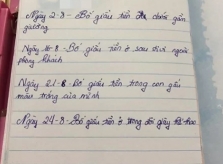 Ngày 2-8-Bố giấu tiền ở chỗ gần
giường
Ngày 16-8-Bố giấu tiền ở sau tivi ngoài
phòng khách
Ngày 21-8-Bố giấu tiền trong con gấu
màu trắng của mình
Ngày 24-8-Bố giấu tiền ở trong đôi giày thể thao